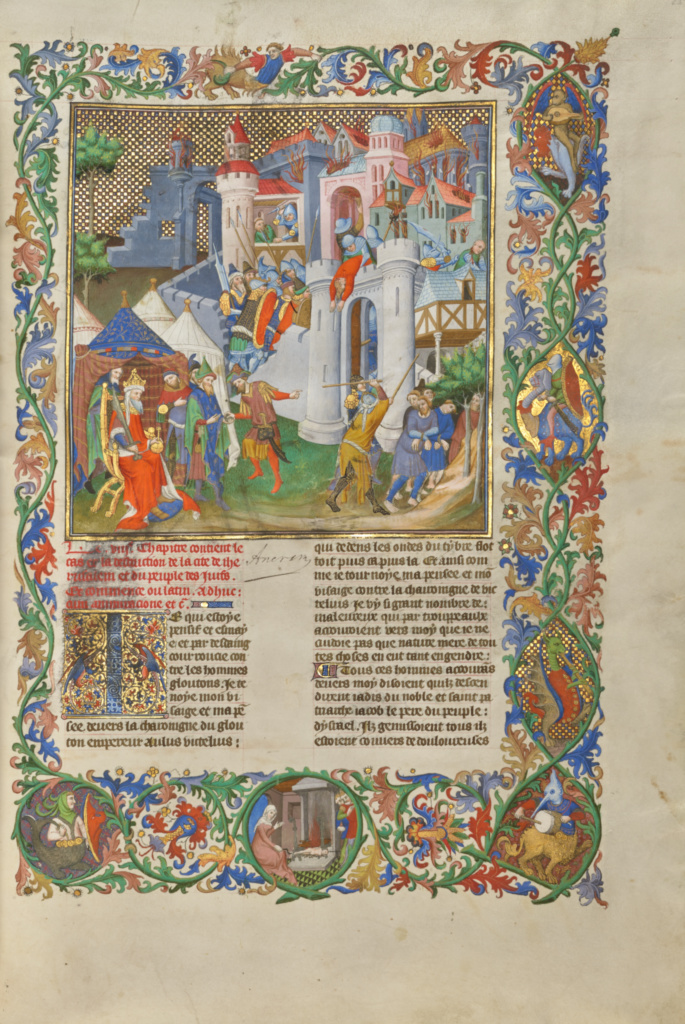 Le viii. Chapitre contient le
cas et la destruction de la cite de ihe
rusalem et du peuple des Juifs.
Et commence ou latin. Adhuc:
Ancron
E qui estoye
pensif et esmay
e et par desdaing
courroucie con
tre les hommes
gloutons. Je re
noye mon vi
saige et ma pe
see devers la charoingne du glou
ton empereur Aulus vitelius:
qui dedens les ondes du tybre flot
toit puis ca puis la. Et ainsi com
me je tournoye ma pensee et mo
visaige contre la charoingne de vic
telius Je vy si grant nombre de:
maleureux qui par trouppeaulx
acouroient vers moy que je ne
cuidoie pas que nature mere de tou
tes choses en eut tant engendre:
Tous ces hommes acourās
devers moy disoient quilz descen
dirent iadis du noble et saint pa
triarche iacob le pere du peuple:
dysrael. Ilz gemissoient tous ilz
estoient couvers de douloureuses